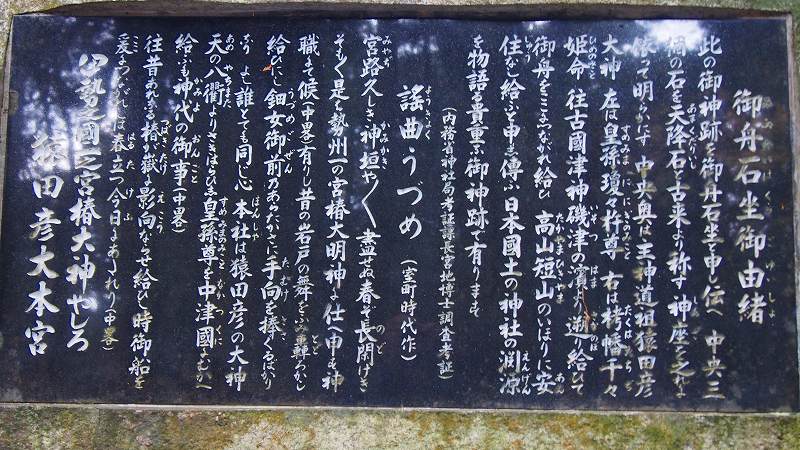 御舟石坐御由緒
此の御神跡を御舟石坐と申し伝へ 中央三
個の石を天降石と古来より称す 神座をこれに
依って明らかにす 中央奥は主神道祖猿田彦
大神 左は皇孫瓊々杵尊 右は栲幡千々
姫命 往古國津神磯津の濱に遡り給ひて
御舟をここにつながれ給ひ 高山短山のいほりに安
住なし給ふと申し傳ふ 日本國土の神社の淵源
を物語る貴重な御神跡で有ります
(内務省神社局考証課長宮地博士調査考証)
謡曲うづめ (室町時代作)
宮路久しき神垣や 盡せぬ春ぞ長閑けき
そもそも是は勢州一の宮椿大明神に仕へ申す神
職にて候(中畧)有りし昔の岩戸の舞をふみ轟ろかし
給ひし 鈿女御前乃あらたかに 手向を捧ぐるばかり
なり よし誰とても同じ心 本社は猿田彦の大神
天の八衢よりこきはらひ 皇孫尊を中津國にむかへ
給ふも神代の御事(中畧)
往昔あれなる椿が嶽に影向なさせ給ひし時御船を
つながれ は春立つ今日にあたれり(中畧)
伊勢之國一之宮椿大神やしろ
猿田彦大本宮